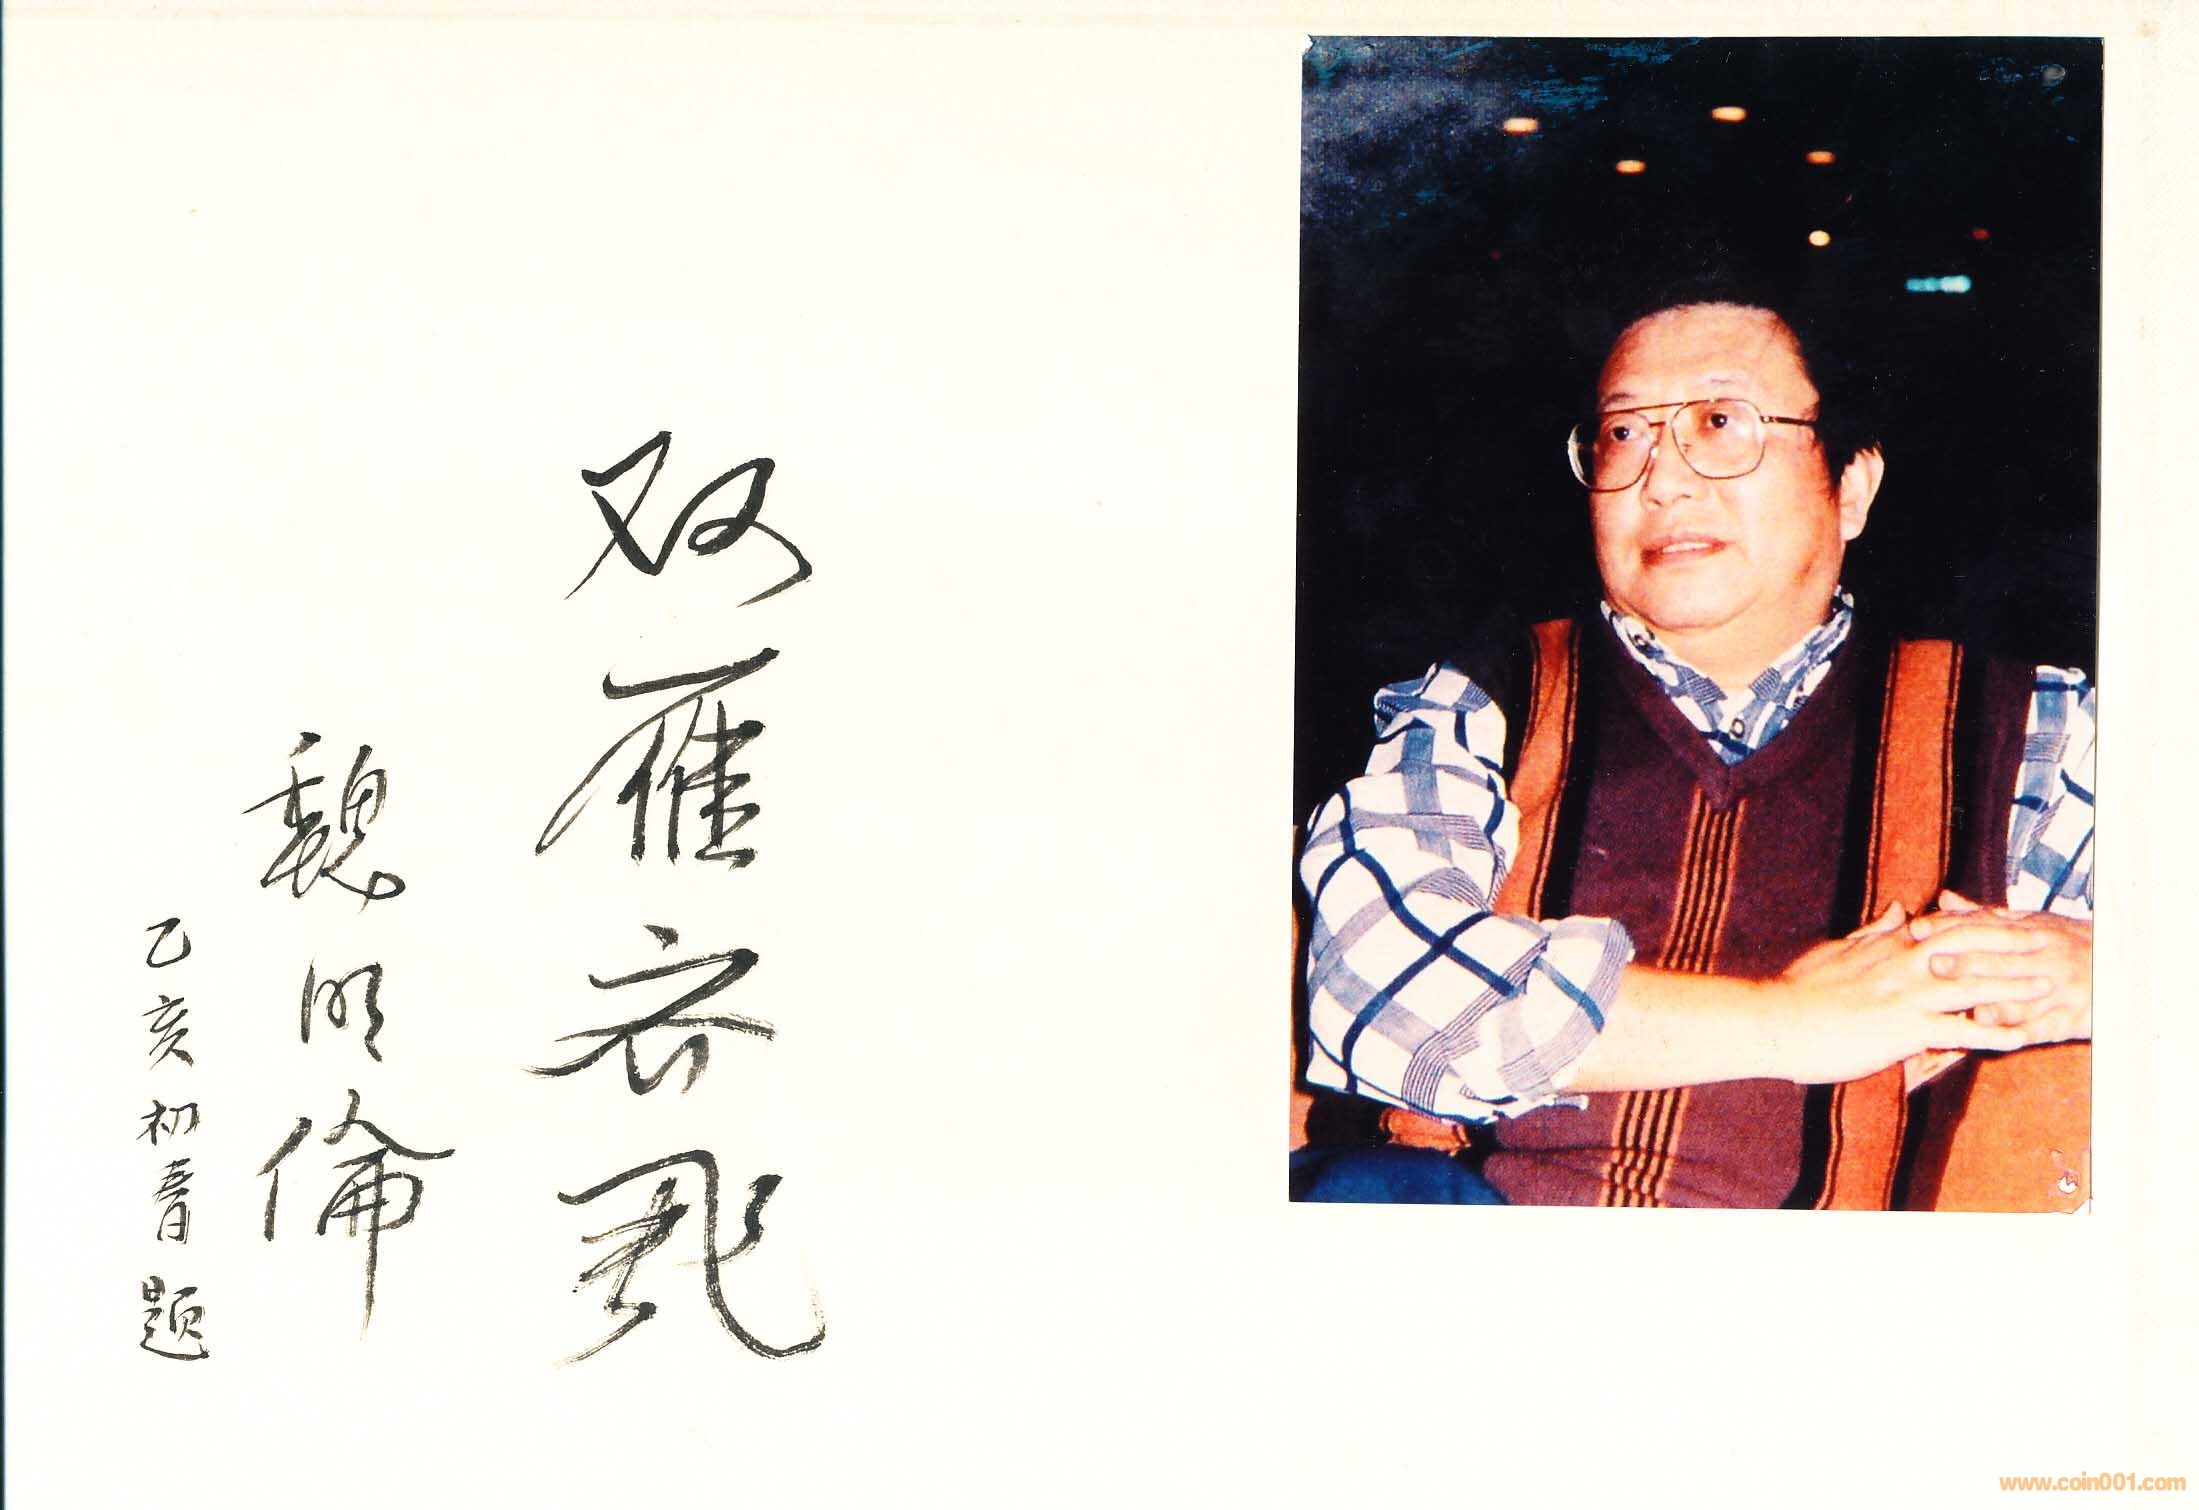 双雁齐飛
魏明倫
乙亥初春题
www.coin001.com